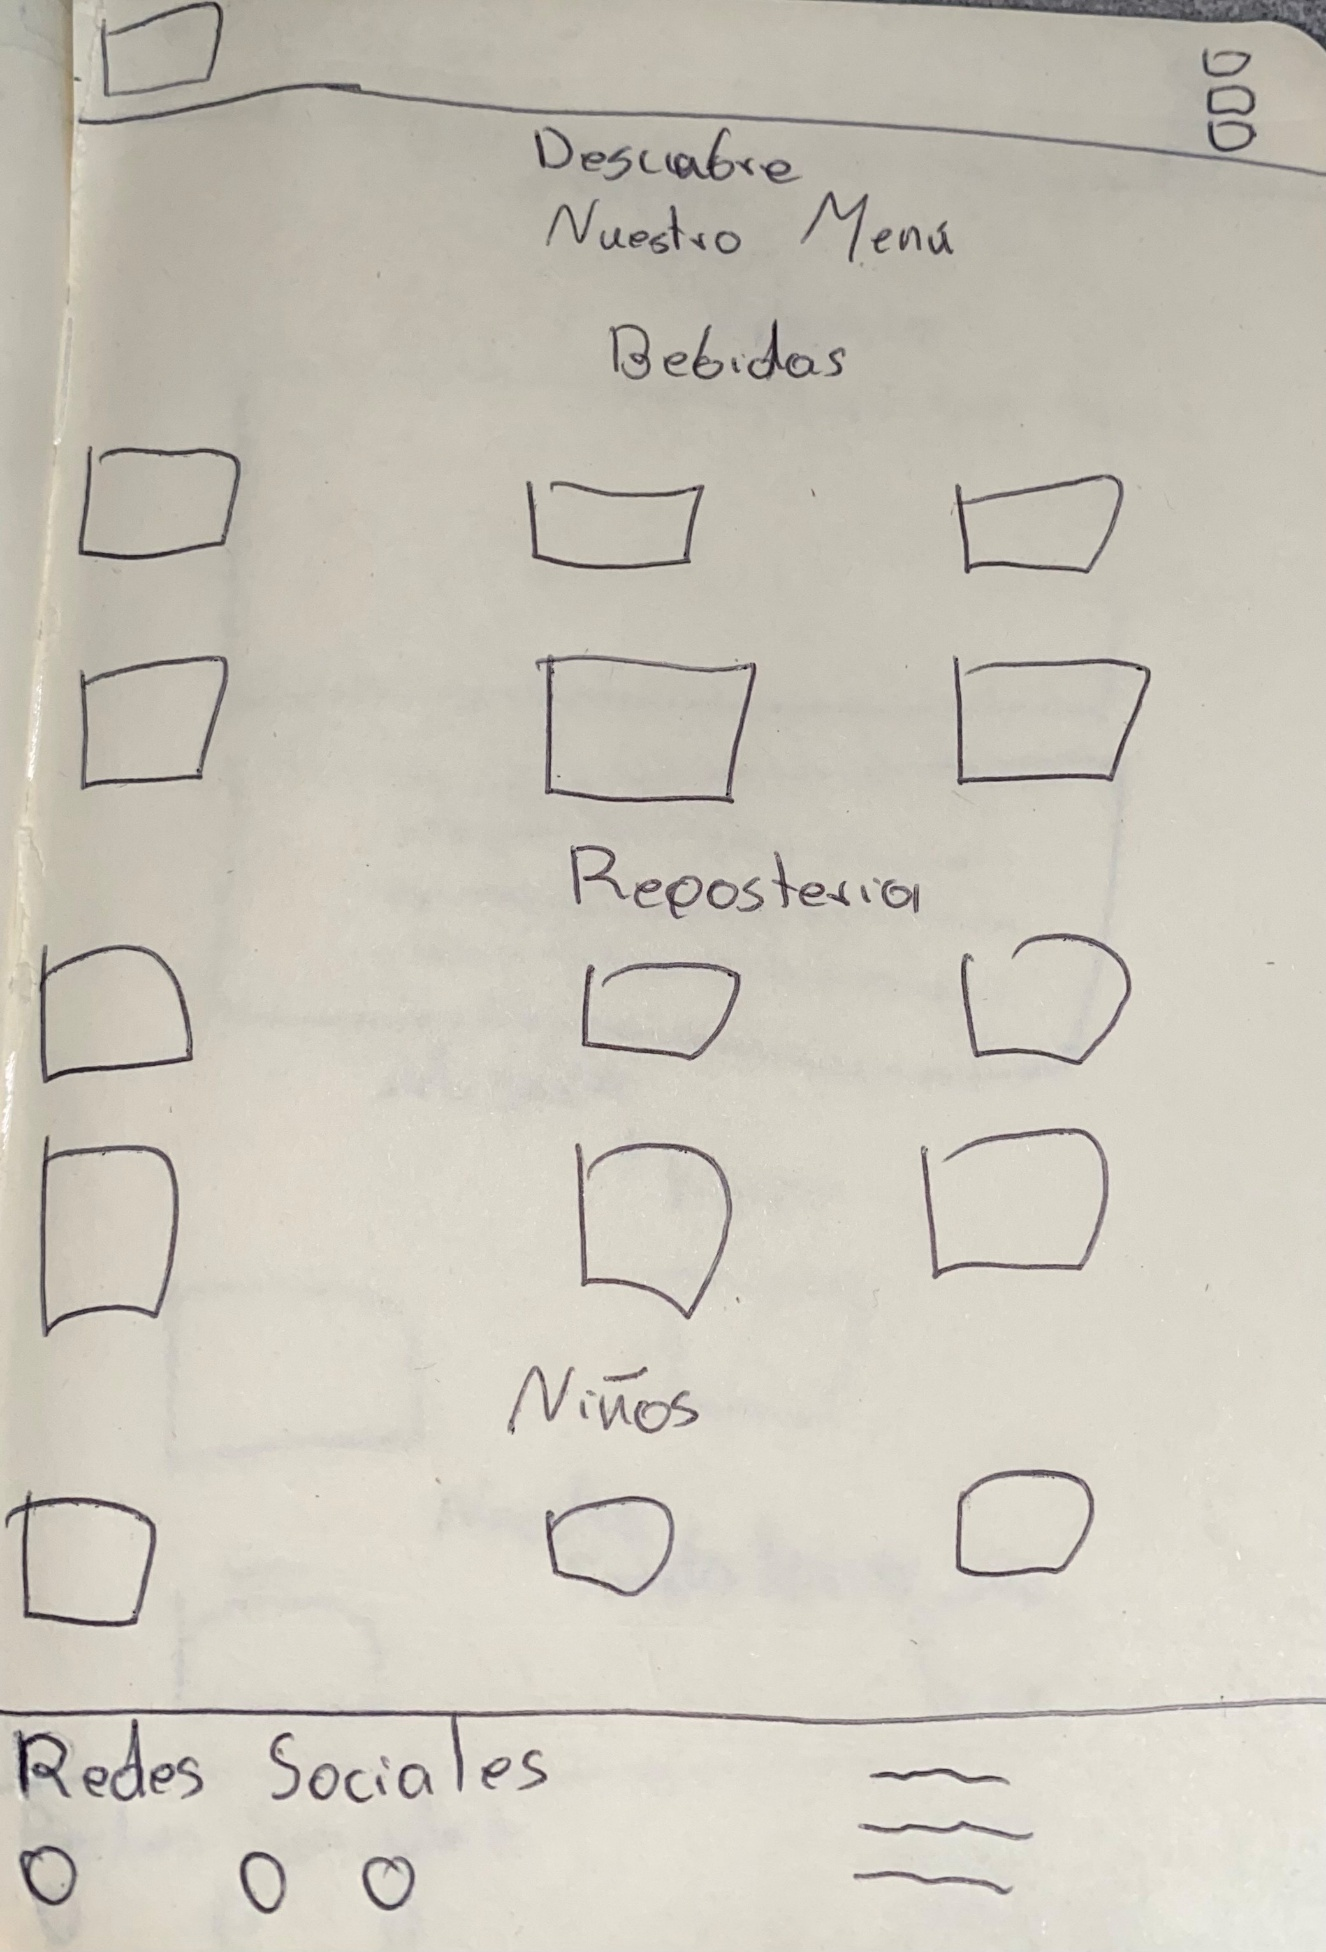 Descubre
Nuestro Menú
Bebidas
Reposteria
Niños
Redes Sociales